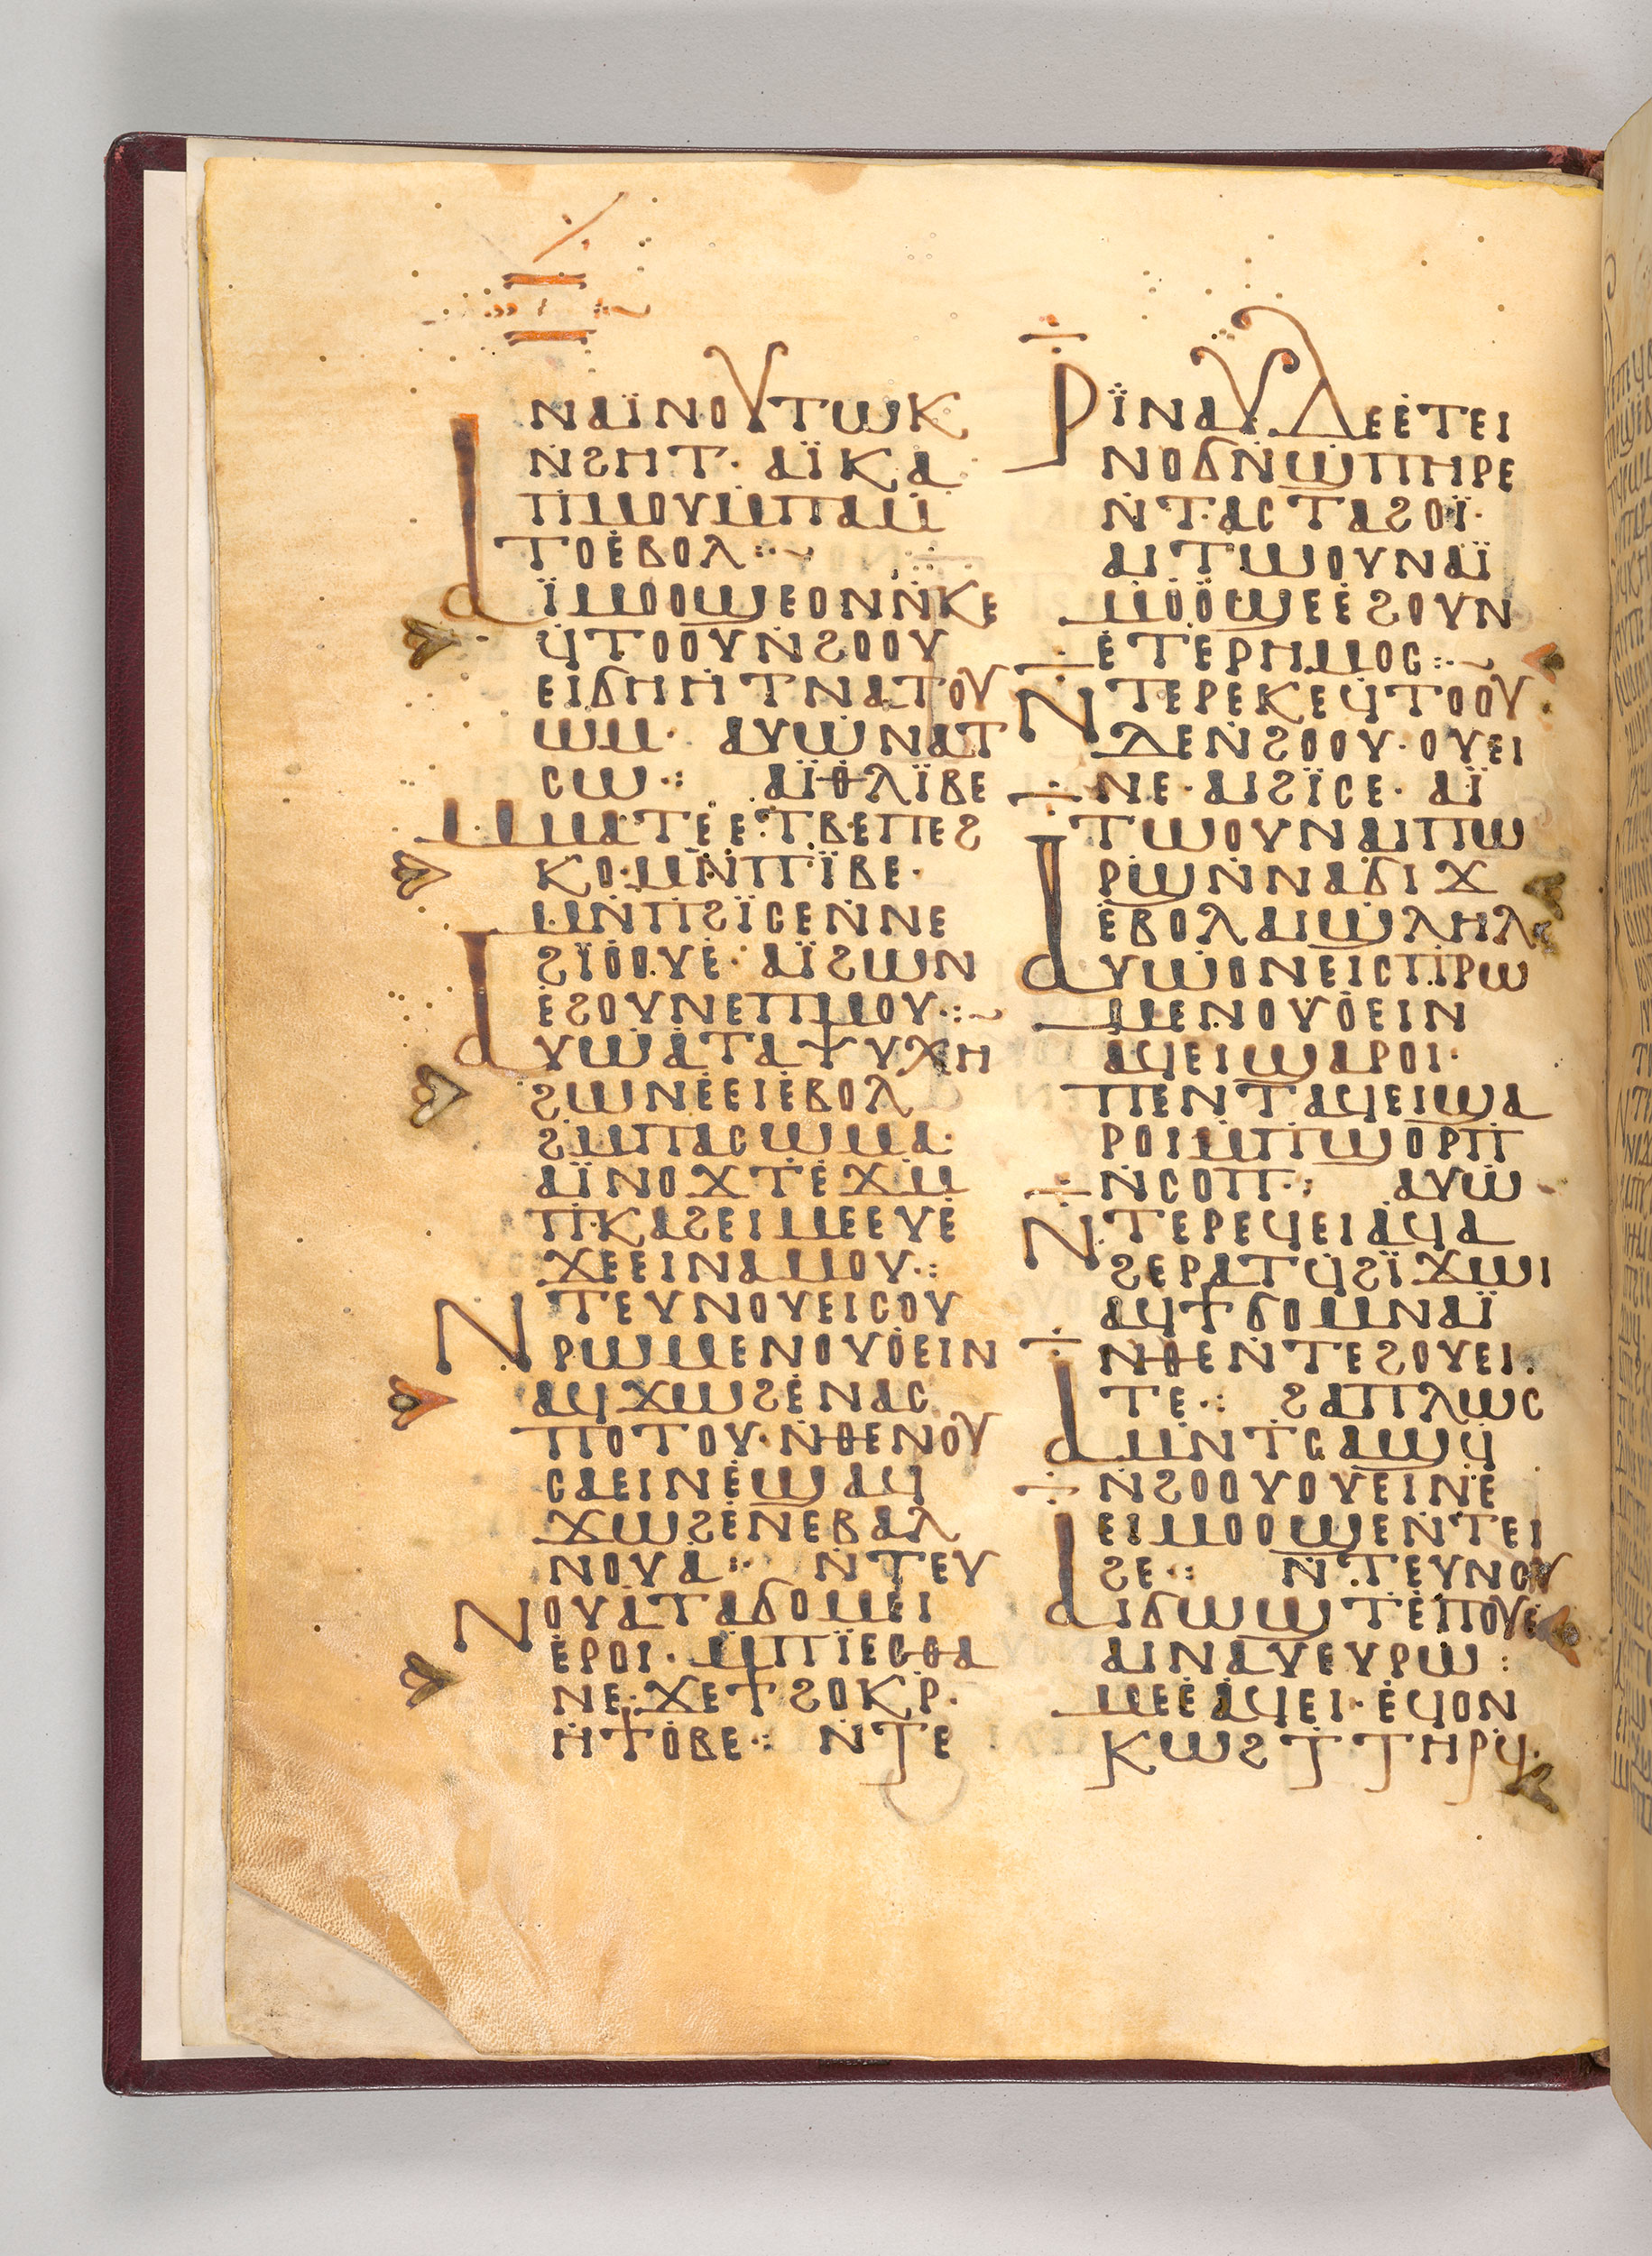 ⲛⲁⲓ̈ⲛⲟⲩⲧⲱⲕ
ⲛ̇ϩⲏⲧ· ⲁⲓ̈ⲕⲁ
ⲡⲙⲟⲩⲙ̇ⲡⲁⲙ̇
ⲧⲟⲉ̇ⲃⲟⲗ⁖~
ⲁⲓ̈ⲙⲟⲟϣⲉⲟⲛⲛ̇ⲕⲉ
ϥⲧⲟⲟⲩⲛ̇ϩⲟⲟⲩ
ⲉⲓϭⲏⲏⲧⲛⲁⲧⲟⲩ
ⲱⲙ· ⲁⲩⲱⲛⲁⲧ
ⲥⲱ⁖ ⲁⲓ̈ⲑⲗⲓ̈ⲃⲉ
ⲙ̇ⲙⲁⲧⲉ ⲉⲧⲃⲉⲡⲉϩ
ⲕⲟ·ⲙⲛ̇ⲡⲓ̈ⲃⲉ·
ⲙⲛ̇ⲡϩⲓ̈ⲥⲉⲛ̇ⲛⲉ
ϩⲓⲟⲟⲩⲉ̇· ⲁⲓ̈ϩⲱⲛ
ⲉϩⲟⲩⲛⲉⲡⲙⲟⲩ⁖~
ⲁⲩⲱⲁ̇ⲧⲁⲯⲩⲭⲏ
ϩⲱⲛⲉ̇ⲉⲓⲉ̇ⲃⲟⲗ
ϩⲙ̇ⲡⲁⲥⲱⲙⲁ·
ⲁⲓ̈ⲛⲟϫⲧⲉ̇ϫⲙ̇
ⲡⲕⲁϩⲉⲓⲙⲉⲉⲩⲉ̇
ϫⲉⲉⲓⲛⲁⲙⲟⲩ⁖
ⲛ̇ⲧⲉⲩⲛⲟⲩⲉⲓⲥⲟⲩ
ⲣⲱⲙⲉⲛⲟⲩⲟ̇ⲉⲓⲛ
ⲁϥϫⲱϩⲉ̇ⲛⲁⲥ
ⲡⲟⲧⲟⲩ·ⲛ̇ⲑⲉⲛⲟⲩ
ⲥⲁⲉⲓⲛⲉ̇ϣⲁϥ
ϫⲱϩⲉ̇ⲛⲉⲃⲁⲗ
ⲛⲟⲩⲁ⁖ ⲛ̇ⲧⲉⲩ
ⲛⲟⲩⲁ̇ⲧⲁϭⲟⲙⲉⲓ
ⲉ̇ⲣⲟⲓ· ⲙ̇ⲡⲓ̈ⲉⲥⲑⲁ
ⲛⲉ·ϫⲉϯϩⲟⲕⲣ̇·
ⲏ̇ϯⲟ̇ⲃⲉ⁖ ⲛ̇ⲧⲉ
ⲣⲓ̈ⲛⲁⲩⲇⲉⲉ̇ⲧⲉⲓ
ⲛⲟϭⲛ̇ϣⲡⲏⲣⲉ
ⲛ̇ⲧⲁⲥⲧⲁϩⲟⲓ̈·
ⲁⲓⲧⲱⲟⲩⲛⲁⲓ̈
ⲙⲟⲟϣⲉⲉ̇ϩⲟⲩⲛ
ⲉ̇ⲧⲉⲣⲏⲙⲟⲥ⁖~
ⲛ̇ⲧⲉⲣⲉⲕⲉϥⲧⲟⲟⲩ
ⲇⲉⲛ̇ϩⲟⲟⲩ·ⲟⲩⲉⲓ
ⲛⲉ·ⲁⲓϩⲓ̈ⲥⲉ· ⲁⲓ̈
ⲧⲱⲟⲩⲛⲁⲓⲡⲱ
ⲣϣⲛ̇ⲛⲁϭⲓϫ
ⲉ̇ⲃⲟⲗⲁⲓϣⲗⲏⲗ
ⲁⲩⲱⲟⲛⲉⲓⲥⲡⲣⲱ
ⲙⲉⲛⲟⲩⲟ̇ⲉⲓⲛ
ⲁϥⲉⲓϣⲁⲣⲟⲓ·
ⲡⲉⲛⲧⲁϥⲉⲓϣⲁ
ⲣⲟⲓⲙ̇ⲡϣⲟⲣⲡ
ⲛ̇ⲥⲟⲡ⁖ ⲁⲩⲱ
ⲛ̇ⲧⲉⲣⲉϥⲉⲓⲁ̇ϥⲁ
ϩⲉⲣⲁⲧϥϩⲓ̈ϫⲱⲓ
ⲁϥϯϭⲟⲙⲛⲁⲓ̈
ⲛ̇ⲑⲉⲛ̇ⲧⲉϩⲟⲩⲉⲓ·
ⲧⲉ⁖ ϩⲁⲡⲗⲱⲥ
ⲁⲙⲛⲧⲥⲁϣϥ
ⲛ̇ϩⲟⲟⲩⲟⲩⲉⲓⲛⲉ̇
ⲉⲓⲙⲟⲟϣⲉⲛ̇ⲧⲉⲓ
ϩⲉ⁖ ⲛ̇ⲧⲉⲩⲛⲟⲩ
ⲁⲓϭⲱϣⲧⲉ̇ⲡⲟⲩⲉ̇
ⲁⲓⲛⲁⲩⲉⲩⲣⲱ:
ⲙⲉⲉⲁ̇ϥⲉⲓ·ⲉ̇ϥⲟⲛ
ⲕⲱϩⲧⲧⲏⲣϥ·